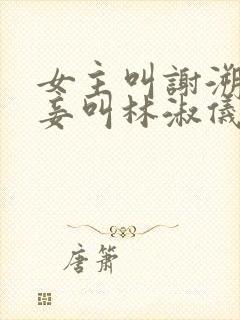 女主叫謝溯
妾叫林淑儀
唐簫